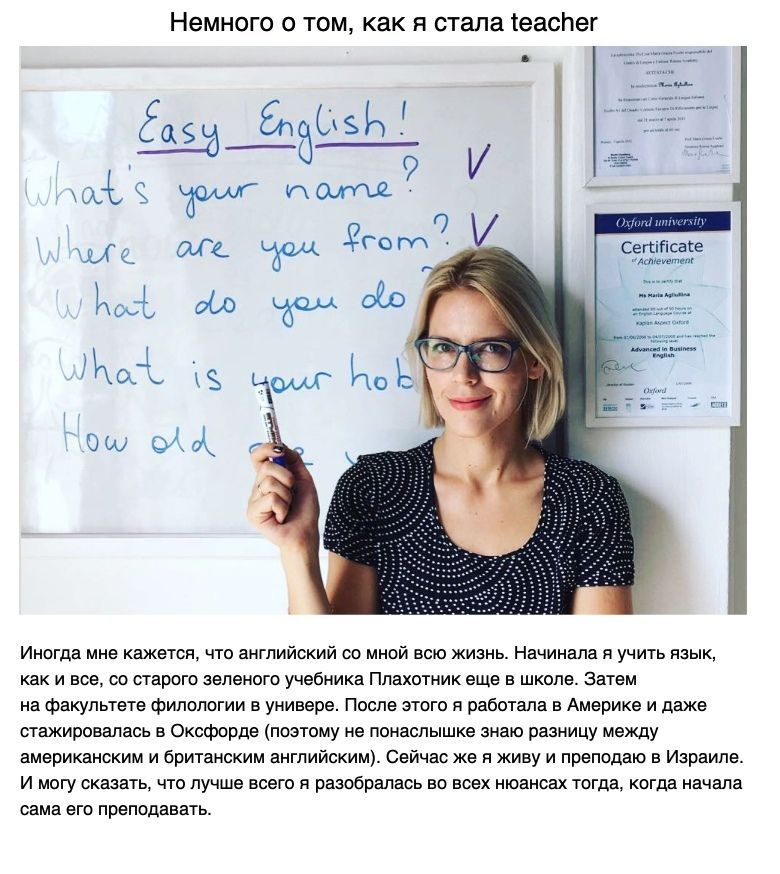 Немного о том, как я стала teacher
Easy English!
What's your name? V
Where are you from? V
What do you do
What is your hob
How old
ATTESTA CHE
Oxford university
Certificate
of Achievement
This is to certify that
Ms Maria Agliullina
attended 60 out of 60 hours on
an English Language Course at
Kaplan Aspect Oxford
level
Advanced in Business
English
Director of Studies
Oxford
Иногда мне кажется, что английский со мной всю жизнь. Начинала я учить язык,
как и все, со старого зеленого учебника Плахотник еще в школе. Затем
на факультете филологии в универе. После этого я работала в Америке и даже
стажировалась в Оксфорде (поэтому не понаслышке знаю разницу между
американским и британским английским). Сейчас же я живу и преподаю в Израиле.
И могу сказать, что лучше всего я разобралась во всех нюансах тогда, когда начала
сама его преподавать.